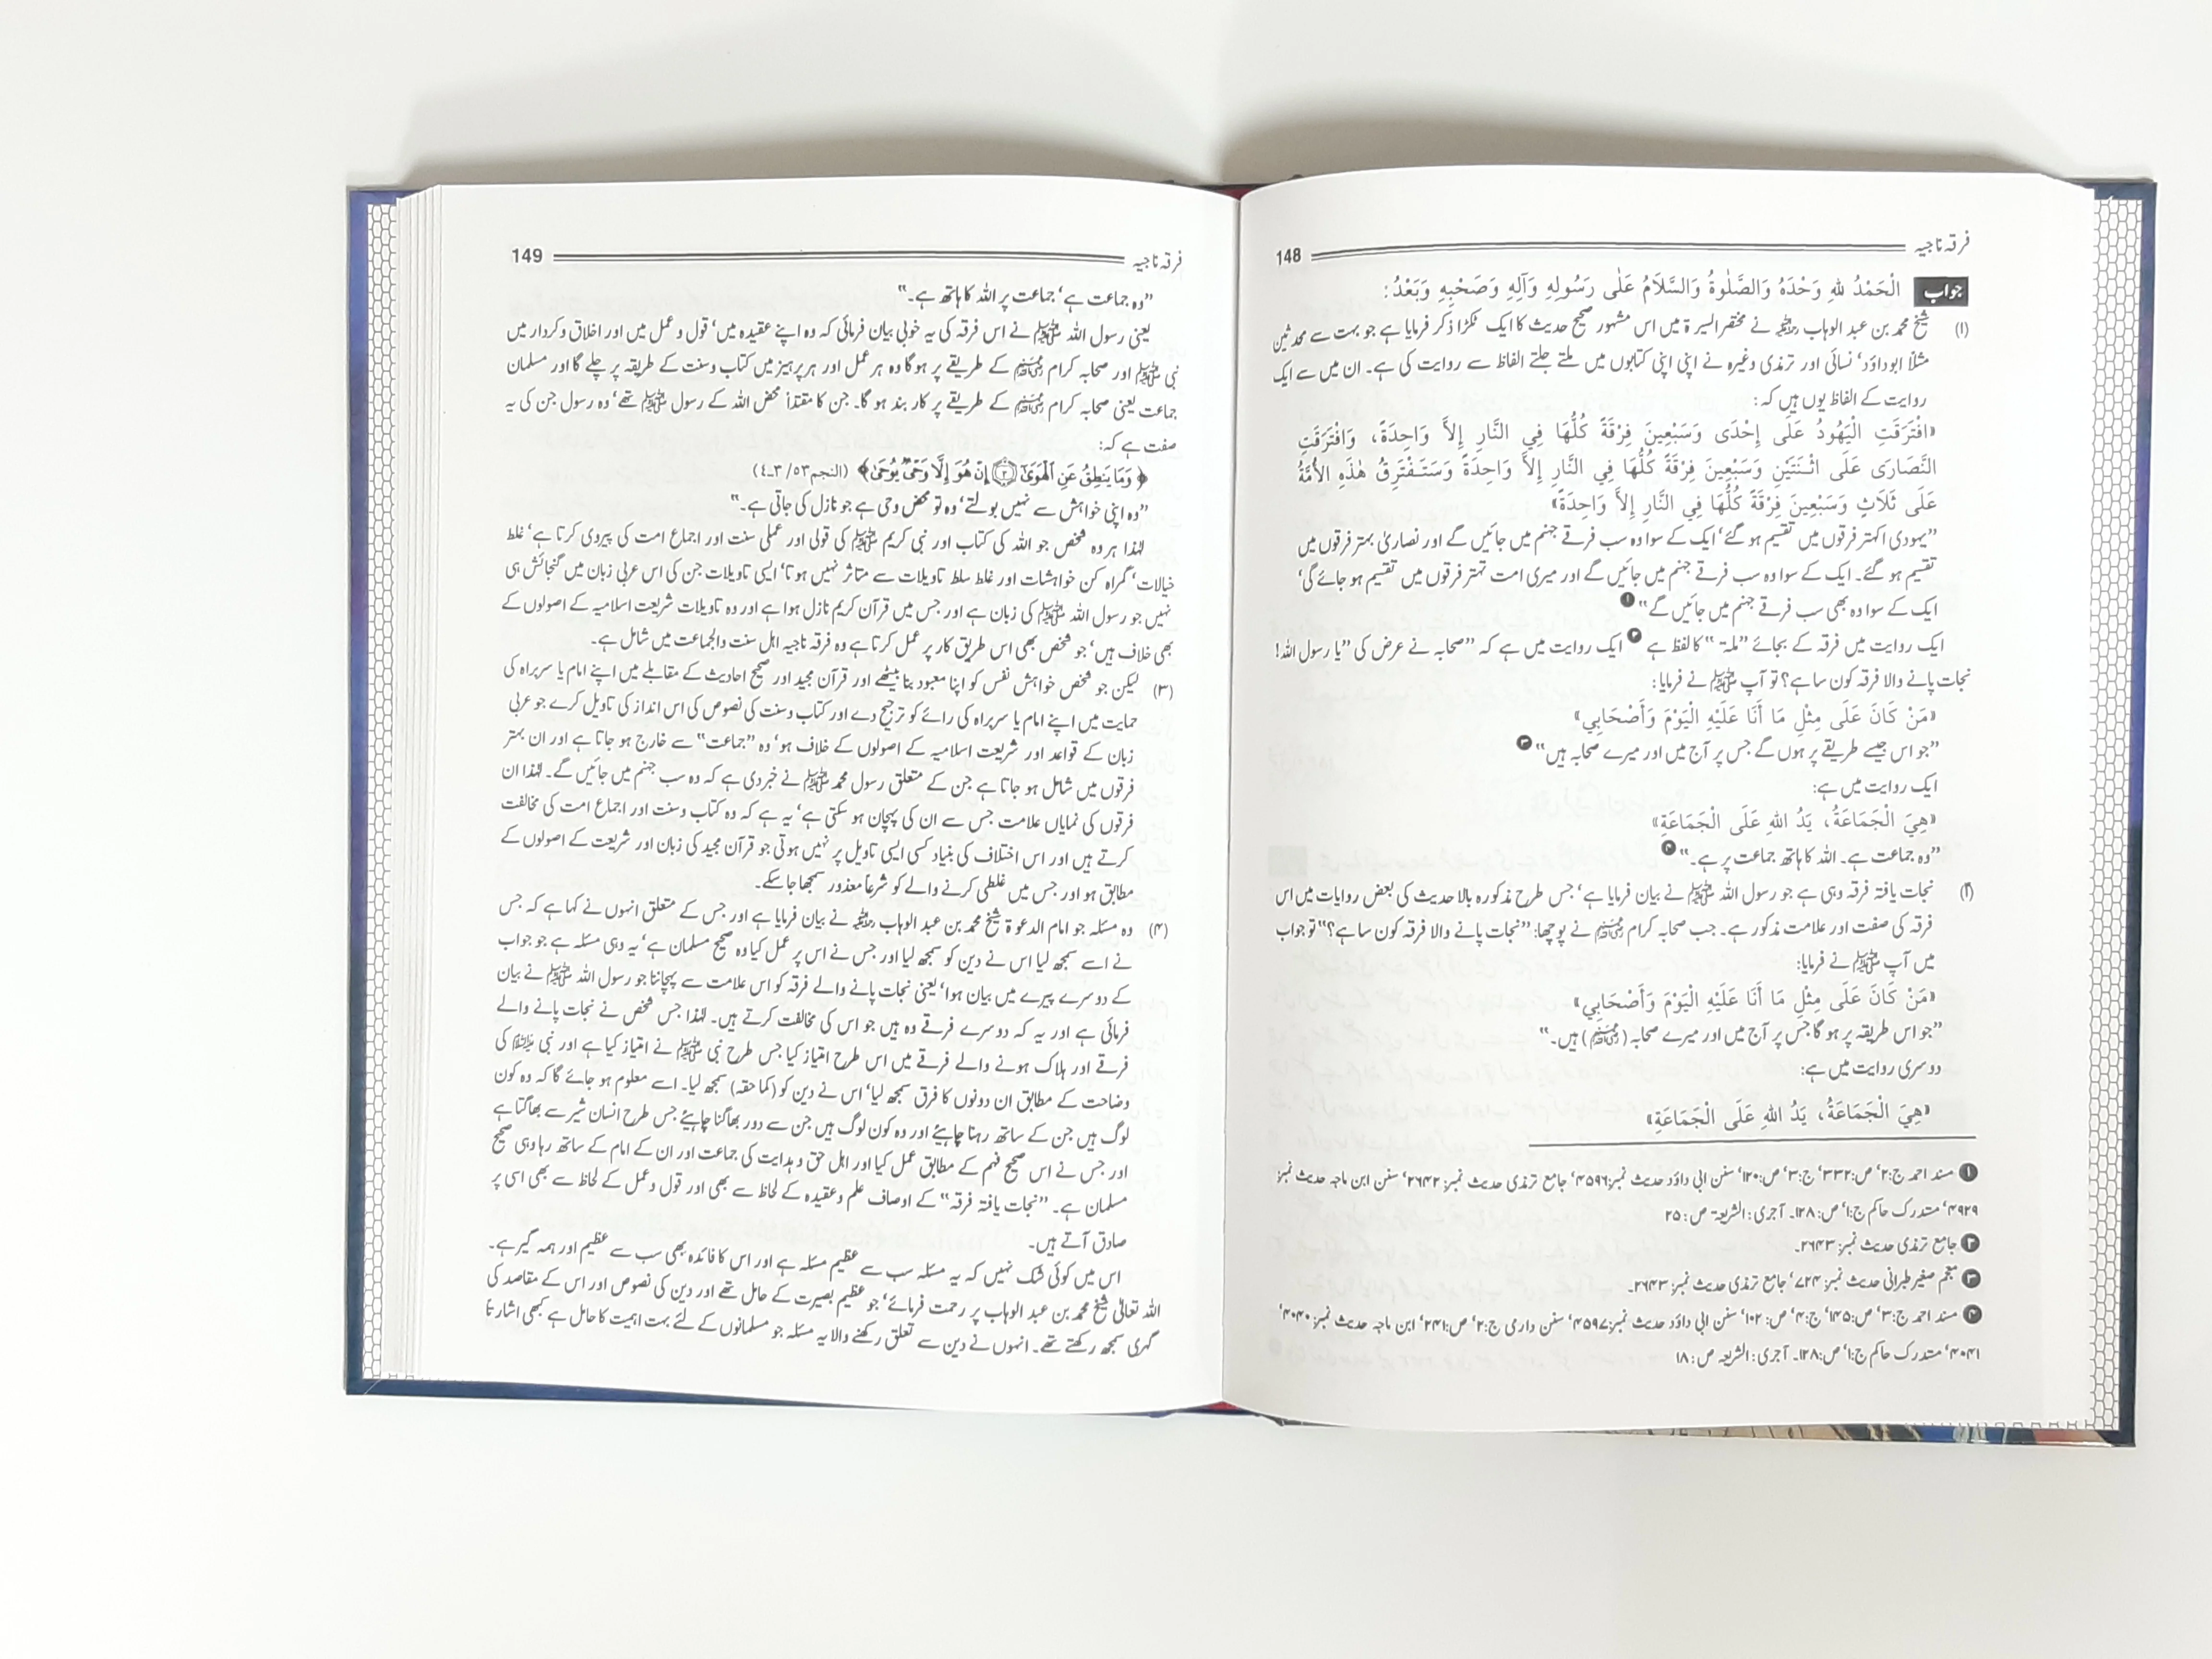 فرقہ ناجیہ 148
جواب الْحَمْدُ للهِ وَحْدَهُ وَالصَّلٰوةُ وَالسَّلَامُ عَلٰى رَسُولِهِ وَآلِهِ وَصَحْبِهِ وَبَعْدُ:
(۱) شیخ محمد بن عبد الوہاب رحمہ اللہ نے مختصر السیرۃ میں اس مشہور صحیح حدیث کا ایک ٹکڑا ذکر فرمایا ہے جو بہت سے محدثین
مثلاً ابوداؤد‘ نسائی اور ترمذی وغیرہ نے اپنی اپنی کتابوں میں ملتے جلتے الفاظ سے روایت کی ہے۔ ان میں سے ایک
روایت کے الفاظ یوں ہیں کہ:
«افْتَرَقَتِ الْيَهُودُ عَلَى إِحْدَى وَسَبْعِينَ فِرْقَةً كُلُّهَا فِي النَّارِ إِلاَّ وَاحِدَةً، وَافْتَرَقَتِ
النَّصَارَى عَلَى اثْنَتَيْنِ وَسَبْعِينَ فِرْقَةً كُلُّهَا فِي النَّارِ إِلاَّ وَاحِدَةً وَسَتَفْتَرِقُ هٰذِهِ الأُمَّةُ
عَلَى ثَلَاثٍ وَسَبْعِينَ فِرْقَةً كُلُّهَا فِي النَّارِ إِلاَّ وَاحِدَةً»
”یہودی اکہتر فرقوں میں تقسیم ہو گئے‘ ایک کے سوا وہ سب فرقے جہنم میں جائیں گے اور نصاریٰ بہتر فرقوں میں
تقسیم ہو گئے۔ ایک کے سوا وہ سب فرقے جہنم میں جائیں گے اور میری امت تہتر فرقوں میں تقسیم ہو جائے گی‘
ایک کے سوا وہ بھی سب فرقے جہنم میں جائیں گے“ ۱
ایک روایت میں فرقہ کے بجائے ”ملۃ“ کا لفظ ہے ۲ ایک روایت میں ہے کہ ”صحابہ نے عرض کی ”یا رسول اللہ!
نجات پانے والا فرقہ کون سا ہے؟ تو آپ ﷺ نے فرمایا:
«مَنْ كَانَ عَلَى مِثْلِ مَا أَنَا عَلَيْهِ الْيَوْمَ وَأَصْحَابِي»
”جو اس جیسے طریقے پر ہوں گے جس پر آج میں اور میرے صحابہ ہیں“ ۳
ایک روایت میں ہے:
«هِيَ الْجَمَاعَةُ، يَدُ اللهِ عَلَى الْجَمَاعَةِ»
”وہ جماعت ہے۔ اللہ کا ہاتھ جماعت پر ہے۔“ ۴
(۲) نجات یافتہ فرقہ وہی ہے جو رسول اللہ ﷺ نے بیان فرمایا ہے‘ جس طرح مذکورہ بالا حدیث کی بعض روایات میں اس
فرقہ کی صفت اور علامت مذکور ہے۔ جب صحابہ کرام رضی اللہ عنہم نے پوچھا: ”نجات پانے والا فرقہ کون سا ہے؟“ تو جواب
میں آپ ﷺ نے فرمایا:
«مَنْ كَانَ عَلَى مِثْلِ مَا أَنَا عَلَيْهِ الْيَوْمَ وَأَصْحَابِي»
”جو اس طریقہ پر ہو گا جس پر آج میں اور میرے صحابہ (رضی اللہ عنہم) ہیں۔“
دوسری روایت میں ہے:
«هِيَ الْجَمَاعَةُ، يَدُ اللهِ عَلَى الْجَمَاعَةِ»
۱ مسند احمد ج:۲‘ ص:۳۳۲‘ ج:۳‘ ص:۱۲۰‘ سنن ابی داؤد حدیث نمبر:۴۵۹۶‘ جامع ترمذی حدیث نمبر: ۲۶۴۲‘ سنن ابن ماجہ حدیث نمبر:
۴۹۲۹‘ مستدرک حاکم ج:۱‘ ص:۱۲۸۔ آجری: الشریعۃ ص: ۲۵
۲ جامع ترمذی حدیث نمبر: ۲۶۴۳۔
۳ معجم صغیر طبرانی حدیث نمبر: ۷۲۴‘ جامع ترمذی حدیث نمبر: ۲۶۴۳۔
۴ مسند احمد ج:۳‘ ص:۱۴۵‘ ج:۴‘ ص: ۱۰۲‘ سنن ابی داؤد حدیث نمبر:۴۵۹۷‘ سنن دارمی ج:۲‘ ص:۲۴۱‘ ابن ماجہ حدیث نمبر: ۴۰۴۰‘
۴۰۴۱‘ مستدرک حاکم ج:۱‘ ص:۱۲۸۔ آجری: الشریعہ ص: ۱۸
فرقہ ناجیہ 149
”وہ جماعت ہے‘ جماعت پر اللہ کا ہاتھ ہے۔“
یعنی رسول اللہ ﷺ نے اس فرقہ کی یہ خوبی بیان فرمائی کہ وہ اپنے عقیدہ میں‘ قول و عمل میں اور اخلاق و کردار میں
نبی ﷺ اور صحابہ کرام رضی اللہ عنہم کے طریقے پر ہو گا وہ ہر عمل اور ہر پرہیز میں کتاب و سنت کے طریقہ پر چلے گا اور مسلمان
جماعت یعنی صحابہ کرام رضی اللہ عنہم کے طریقے پر کاربند ہو گا۔ جن کا مقتدأ محض اللہ کے رسول ﷺ تھے‘ وہ رسول جن کی یہ
صفت ہے کہ:
﴿وَمَا يَنطِقُ عَنِ ٱلْهَوَىٰٓ ۝٣ إِنْ هُوَ إِلَّا وَحْىٌ يُوحَىٰ﴾ (النجم٥٣/ ٣-٤)
”وہ اپنی خواہش سے نہیں بولتے‘ وہ تو محض وحی ہے جو نازل کی جاتی ہے۔“
لہٰذا ہر وہ شخص جو اللہ کی کتاب اور نبی کریم ﷺ کی قولی اور عملی سنت اور اجماع امت کی پیروی کرتا ہے‘ غلط
خیالات‘ گمراہ کن خواہشات اور غلط سلط تاویلات سے متاثر نہیں ہوتا‘ ایسی تاویلات جن کی اس عربی زبان میں گنجائش ہی
نہیں جو رسول اللہ ﷺ کی زبان ہے اور جس میں قرآن کریم نازل ہوا ہے اور وہ تاویلات شریعت اسلامیہ کے اصولوں کے
بھی خلاف ہیں‘ جو شخص بھی اس طریق کار پر عمل کرتا ہے وہ فرقہ ناجیہ اہل سنت والجماعت میں شامل ہے۔
(۳) لیکن جو شخص خواہش نفس کو اپنا معبود بنا بیٹھے اور قرآن مجید اور صحیح احادیث کے مقابلے میں اپنے امام یا سربراہ کی
حمایت میں اپنے امام یا سربراہ کی رائے کو ترجیح دے اور کتاب و سنت کی نصوص کی اس انداز کی تاویل کرے جو عربی
زبان کے قواعد اور شریعت اسلامیہ کے اصولوں کے خلاف ہو‘ وہ ”جماعت“ سے خارج ہو جاتا ہے اور ان بہتر
فرقوں میں شامل ہو جاتا ہے جن کے متعلق رسول محمد ﷺ نے خبر دی ہے کہ وہ سب جہنم میں جائیں گے۔ لہٰذا ان
فرقوں کی نمایاں علامت جس سے ان کی پہچان ہو سکتی ہے‘ یہ ہے کہ وہ کتاب و سنت اور اجماع امت کی مخالفت
کرتے ہیں اور اس اختلاف کی بنیاد کسی ایسی تاویل پر نہیں ہوتی جو قرآن مجید کی زبان اور شریعت کے اصولوں کے
مطابق ہو اور جس میں غلطی کرنے والے کو شرعاً معذور سمجھا جا سکے۔
(۴) وہ مسئلہ جو امام الدعوۃ شیخ محمد بن عبد الوہاب رحمہ اللہ نے بیان فرمایا ہے اور جس کے متعلق انہوں نے کہا ہے کہ جس
نے اسے سمجھ لیا اس نے دین کو سمجھ لیا اور جس نے اس پر عمل کیا وہ صحیح مسلمان ہے‘ یہ وہی مسئلہ ہے جو جواب
کے دوسرے پیرے میں بیان ہوا‘ یعنی نجات پانے والے فرقہ کو اس علامت سے پہچاننا جو رسول اللہ ﷺ نے بیان
فرمائی ہے اور یہ کہ دوسرے فرقے وہ ہیں جو اس کی مخالفت کرتے ہیں۔ لہٰذا جس شخص نے نجات پانے والے
فرقے اور ہلاک ہونے والے فرقے میں اس طرح امتیاز کیا جس طرح نبی ﷺ نے امتیاز کیا ہے اور نبی ﷺ کی
وضاحت کے مطابق ان دونوں کا فرق سمجھ لیا‘ اس نے دین کو (کماحقہ) سمجھ لیا۔ اسے معلوم ہو جائے گا کہ وہ کون
لوگ ہیں جن کے ساتھ رہنا چاہیئے اور وہ کون لوگ ہیں جن سے دور بھاگنا چاہیئے جس طرح انسان شیر سے بھاگتا ہے
اور جس نے اس صحیح فہم کے مطابق عمل کیا اور اہل حق و ہدایت کی جماعت اور ان کے امام کے ساتھ رہا وہی صحیح
مسلمان ہے۔ ”نجات یافتہ فرقہ“ کے اوصاف علم و عقیدہ کے لحاظ سے بھی اور قول و عمل کے لحاظ سے بھی اسی پر
صادق آتے ہیں۔
اس میں کوئی شک نہیں کہ یہ مسئلہ سب سے عظیم مسئلہ ہے اور اس کا فائدہ بھی سب سے عظیم اور ہمہ گیر ہے۔
اللہ تعالیٰ شیخ محمد بن عبد الوہاب پر رحمت فرمائے‘ جو عظیم بصیرت کے حامل تھے اور دین کی نصوص اور اس کے مقاصد کی
گہری سمجھ رکھتے تھے۔ انہوں نے دین سے تعلق رکھنے والا یہ مسئلہ جو مسلمانوں کے لئے بہت اہمیت کا حامل ہے کبھی اشارتاً